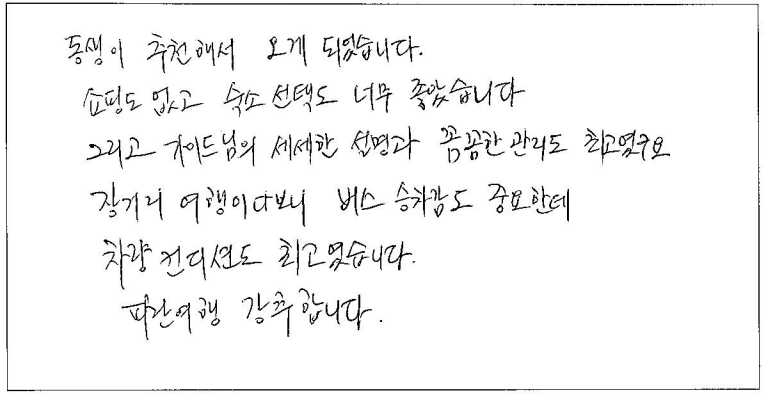 동생이 추천해서 오게 되었습니다.
쇼핑도 없고 숙소 선택도 너무 좋았습니다
그리고 가이드님의 세세한 설명과 꼼꼼한 관리도 최고였구요
장거리 여행이다보니 버스 승차감도 중요한데
차량 컨디션도 최고였습니다.
파란여행 강추합니다.